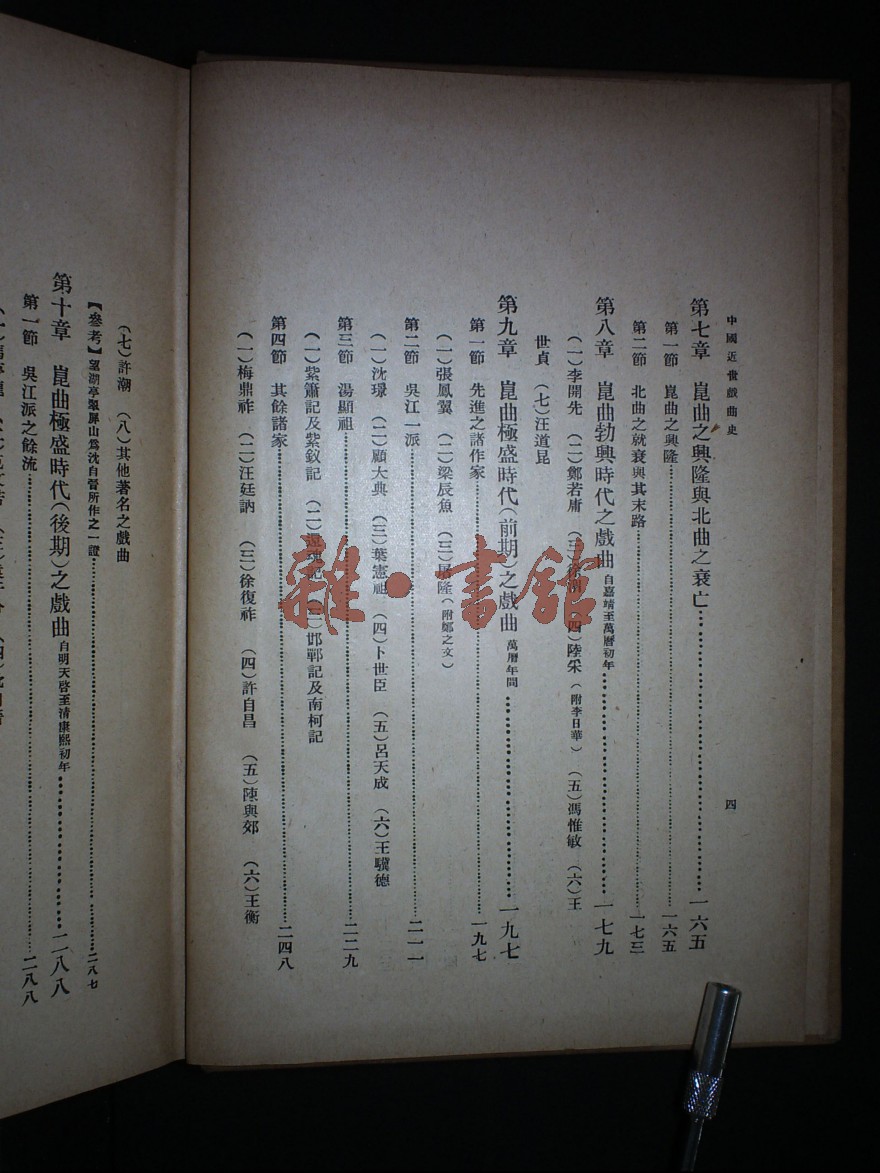 中國近世戲曲史
四
第七章 崑曲之興隆與北曲之衰亡……一六五
第一節 崑曲之興隆……一六五
第二節 北曲之就衰與其末路……一七三
第八章 崑曲勃興時代之戲曲 自嘉靖至萬曆初年……一七九
(一)李開先 (二)鄭若庸 (三) (四)陸采(附李日華) (五)馮惟敏 (六)王
世貞 (七)汪道昆
第九章 崑曲極盛時代(前期)之戲曲 萬曆年間……一九七
第一節 先進之諸作家……一九七
(一)張鳳翼 (二)梁辰魚 (三)屠隆(附鄭之文)
第二節 吳江一派……二一一
(一)沈璟 (二)顧大典 (三)葉憲祖 (四)卜世臣 (五)呂天成 (六)王驥德
第三節 湯顯祖……二二九
(一)紫簫記及紫釵記 (二)還魂記 (三)邯鄲記及南柯記
第四節 其餘諸家……二四八
(一)梅鼎祚 (二)汪廷訥 (三)徐復祚 (四)許自昌 (五)陳與郊 (六)王衡
(七)許潮 (八)其他著名之戲曲
【參考】望湖亭翠屏山爲沈自晉所作之一證……二八七
第十章 崑曲極盛時代(後期)之戲曲 自明天啓至清康熙初年……二八八
第一節 吳江派之餘流……二八八
雜·書館